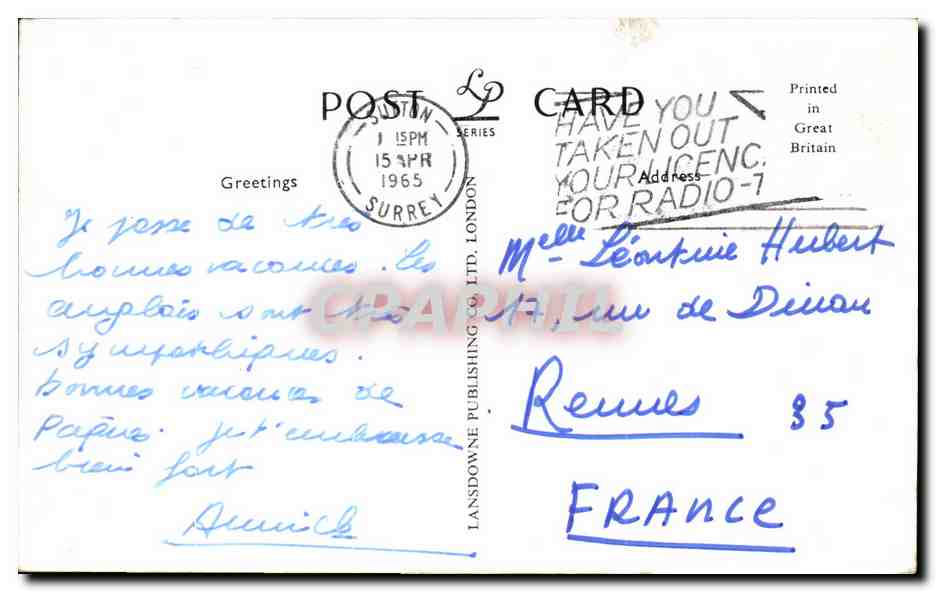 POST CARD
LP
SERIES
SUTTON
15PM
15 APR
1965
SURREY
HAVE YOU
TAKEN OUT
YOUR LICENC
FOR RADIO-T
Printed
in
Great
Britain
Greetings
Address
Je passe de très
bonnes vacances. Les
anglais sont très
sympathiques.
bonnes vacances de
Pâques. Je t'embrasse
bien fort
Annick
LANSDOWNE PUBLISHING CO. LTD. LONDON
Melle Léontine Hubert
17, rue de Dinan
Rennes 35
FRANCE
CPAPHIL